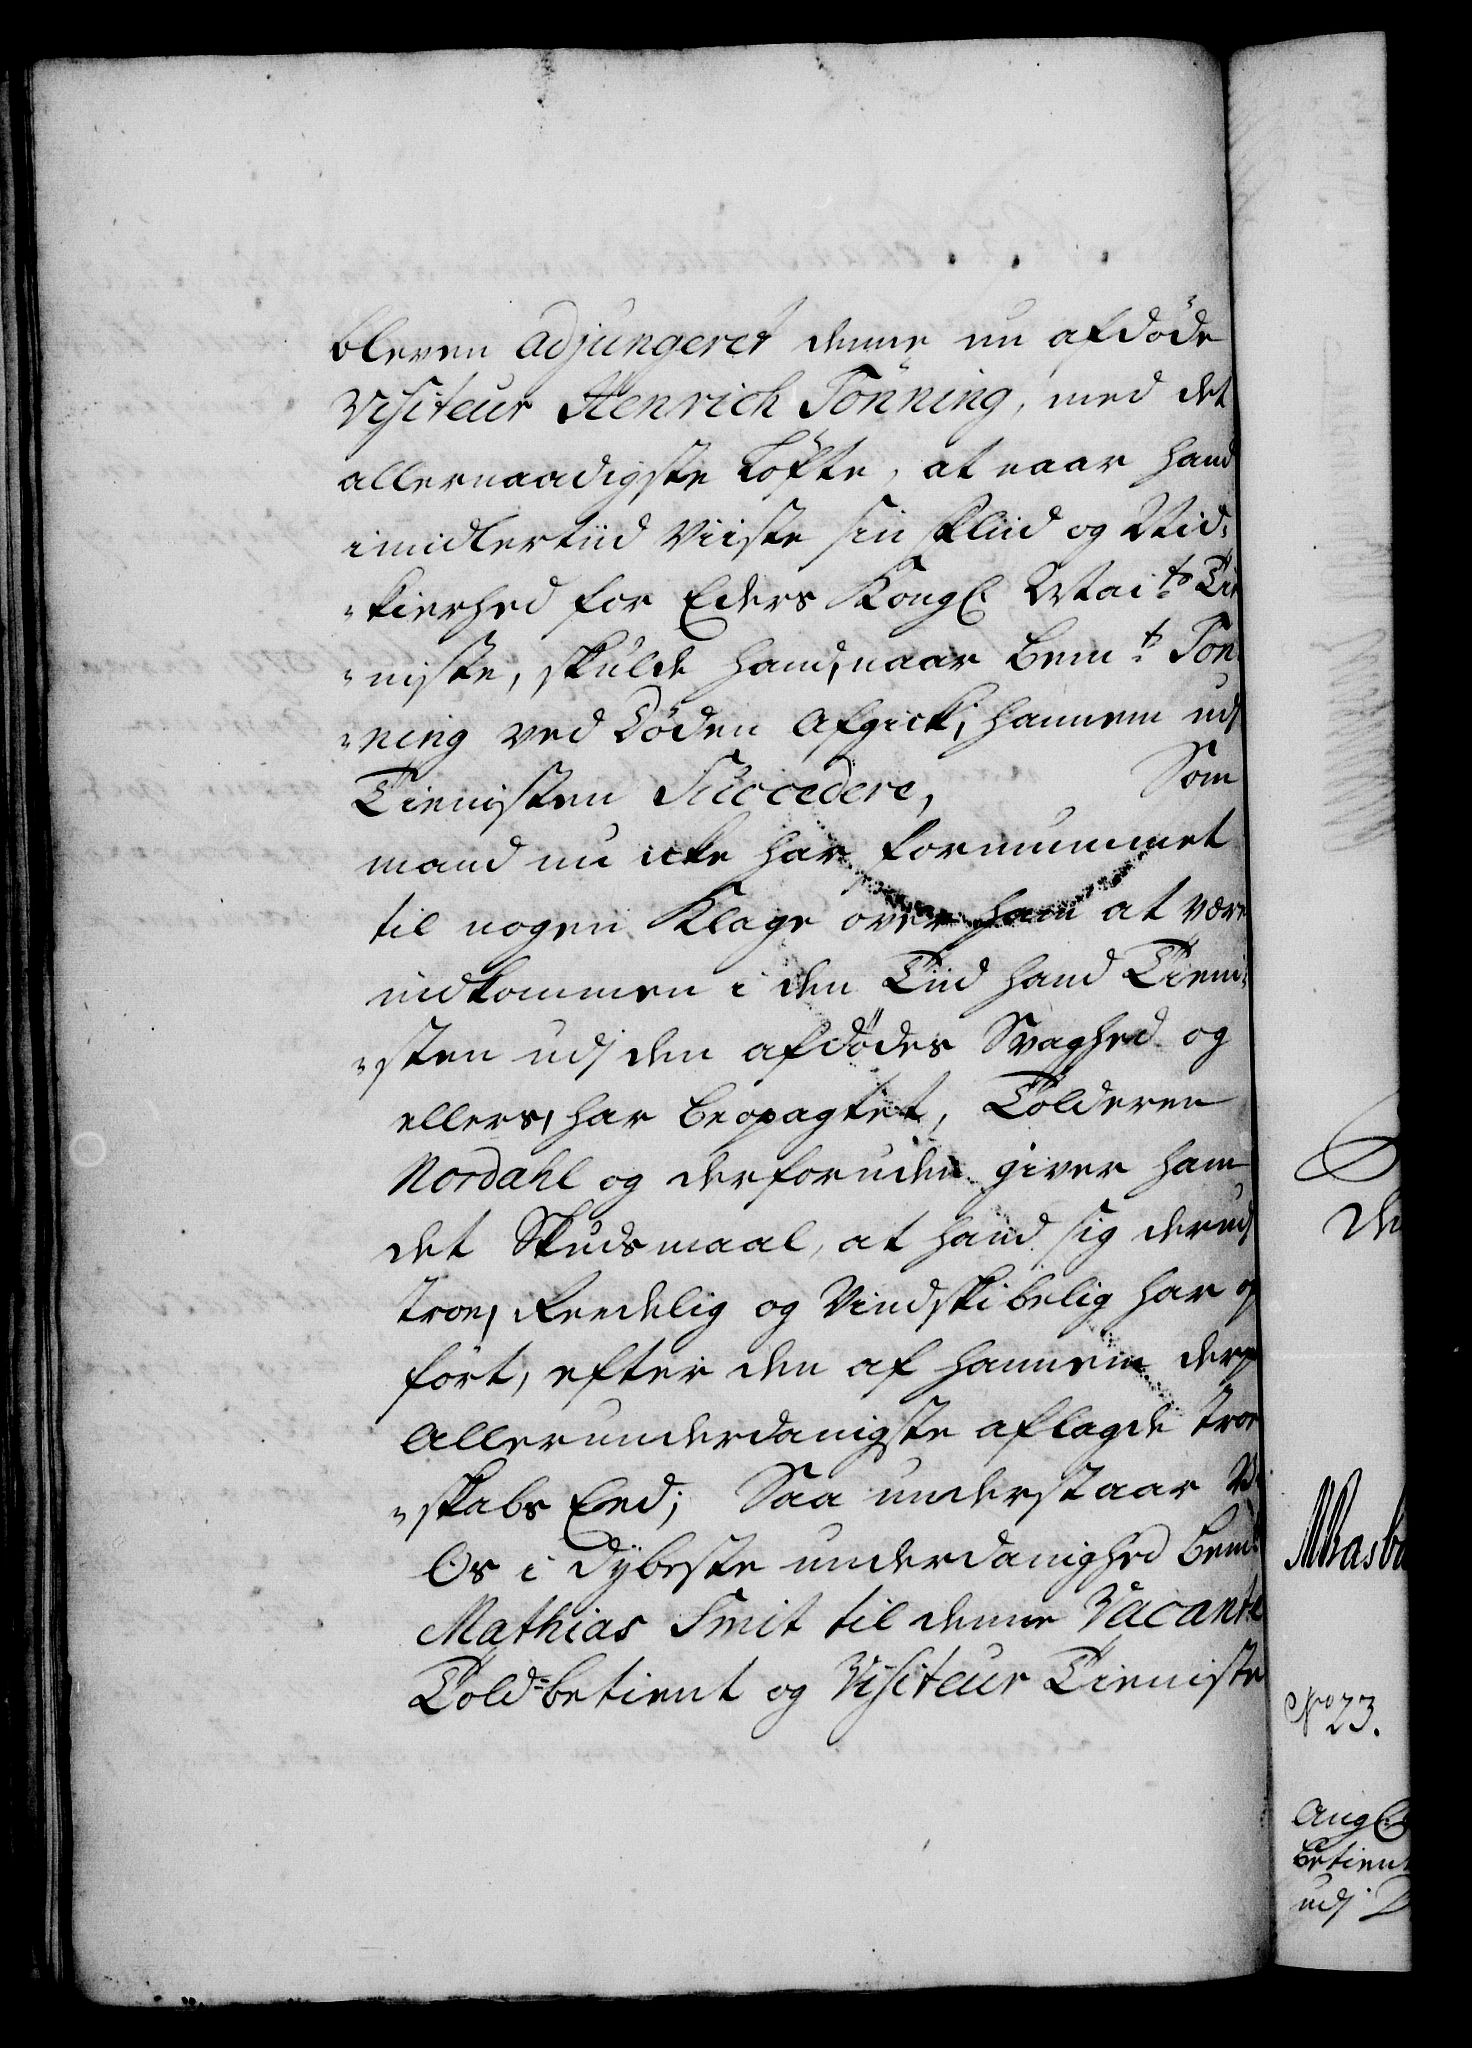 bleven adjungeret denne nu afdöde
Visiteur Henrich Tönning, med det
allernaadigste Löfte, at naar hand
imidlertiid Viiste sin Fliid og Nid-
"kierhed for Eders Kongl Mai:ts Tie
"niste, skulde hand, naar bem:te Tön
"ning ved Döden Afgick, hannem udj
Tienisten Succedere, Som
mand nu icke har fornummet
til nogen Klage over ham at være
indkommen i den Tiid hand Tieni-
"sten udj den afdödes Svaghed og
ellers, har beopagtet, Tolderen
Nordahl og derforuden giver ham
det Skudsmaal, at hand sig derudj
troe, Reedelig og Vindskibelig har op
fört, efter den af hannem derpaa
Allerunderdanigste aflagde troe
"skabs Eed; Saa understaar Vi
Os i dybeste underdanighed bem:te
Mathias Smit til denne Vacante
Told-betient og Visiteur Tieniste
De
No 23.
Ang
betient
udj